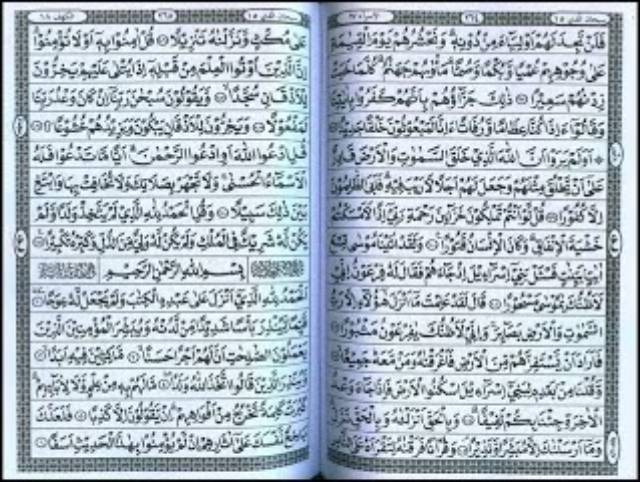 سُبْحٰنَ الَّذِي ١٥
٢٦٤
الاسراء ١٧
فَلَنْ تَجِدَ لَهُمْ اَوْلِيَاءَ مِنْ دُوْنِهٖ وَنَحْشُرُهُمْ يَوْمَ الْقِيٰمَةِ
عَلٰى وُجُوْهِهِمْ عُمْيًا وَّبُكْمًا وَّصُمًّا مَاْوٰىهُمْ جَهَنَّمُ كُلَّمَا خَبَتْ
زِدْنٰهُمْ سَعِيْرًا ذٰلِكَ جَزَاؤُهُمْ بِاَنَّهُمْ كَفَرُوْا بِاٰيٰتِنَا
وَقَالُوْا ءَاِذَا كُنَّا عِظَامًا وَّرُفَاتًا ءَاِنَّا لَمَبْعُوْثُوْنَ خَلْقًا جَدِيْدًا
اَوَلَمْ يَرَوْا اَنَّ اللّٰهَ الَّذِيْ خَلَقَ السَّمٰوٰتِ وَالْاَرْضَ قَادِرٌ
عَلٰى اَنْ يَّخْلُقَ مِثْلَهُمْ وَجَعَلَ لَهُمْ اَجَلًا لَّا رَيْبَ فِيْهِ فَاَبَى الظّٰلِمُوْنَ
اِلَّا كُفُوْرًا قُلْ لَّوْ اَنْتُمْ تَمْلِكُوْنَ خَزَائِنَ رَحْمَةِ رَبِّيْ اِذًا لَّاَمْسَكْتُمْ
خَشْيَةَ الْاِنْفَاقِ وَكَانَ الْاِنْسَانُ قَتُوْرًا وَلَقَدْ اٰتَيْنَا مُوْسٰى تِسْعَ
اٰيٰتٍ بَيِّنٰتٍ فَسْئَلْ بَنِيْ اِسْرَاءِيْلَ اِذْ جَاءَهُمْ فَقَالَ لَهٗ فِرْعَوْنُ اِنِّيْ
لَاَظُنُّكَ يٰمُوْسٰى مَسْحُوْرًا قَالَ لَقَدْ عَلِمْتَ مَا اَنْزَلَ هٰؤُلَاءِ اِلَّا رَبُّ
السَّمٰوٰتِ وَالْاَرْضِ بَصَائِرَ وَاِنِّيْ لَاَظُنُّكَ يٰفِرْعَوْنُ مَثْبُوْرًا
فَاَرَادَ اَنْ يَّسْتَفِزَّهُمْ مِّنَ الْاَرْضِ فَاَغْرَقْنٰهُ وَمَنْ مَّعَهٗ جَمِيْعًا
وَّقُلْنَا مِنْ بَعْدِهٖ لِبَنِيْ اِسْرَاءِيْلَ اسْكُنُوا الْاَرْضَ فَاِذَا جَاءَ وَعْدُ
الْاٰخِرَةِ جِئْنَا بِكُمْ لَفِيْفًا وَبِالْحَقِّ اَنْزَلْنٰهُ وَبِالْحَقِّ نَزَلَ
وَمَا اَرْسَلْنٰكَ اِلَّا مُبَشِّرًا وَّنَذِيْرًا وَقُرْاٰنًا فَرَقْنٰهُ لِتَقْرَاَهٗ عَلَى النَّاسِ
سُبْحٰنَ الَّذِي ١٥
٢٦٥
الكهف ١٨
عَلٰى مُكْثٍ وَّنَزَّلْنٰهُ تَنْزِيْلًا قُلْ اٰمِنُوْا بِهٖ اَوْ لَا تُؤْمِنُوْا
اِنَّ الَّذِيْنَ اُوْتُوا الْعِلْمَ مِنْ قَبْلِهٖ اِذَا يُتْلٰى عَلَيْهِمْ يَخِرُّوْنَ
لِلْاَذْقَانِ سُجَّدًا وَّيَقُوْلُوْنَ سُبْحٰنَ رَبِّنَا اِنْ كَانَ وَعْدُ رَبِّنَا
لَمَفْعُوْلًا وَيَخِرُّوْنَ لِلْاَذْقَانِ يَبْكُوْنَ وَيَزِيْدُهُمْ خُشُوْعًا
قُلِ ادْعُوا اللّٰهَ اَوِ ادْعُوا الرَّحْمٰنَ اَيًّا مَّا تَدْعُوْا فَلَهُ
الْاَسْمَاءُ الْحُسْنٰى وَلَا تَجْهَرْ بِصَلَاتِكَ وَلَا تُخَافِتْ بِهَا وَابْتَغِ
بَيْنَ ذٰلِكَ سَبِيْلًا وَقُلِ الْحَمْدُ لِلّٰهِ الَّذِيْ لَمْ يَتَّخِذْ وَلَدًا وَّلَمْ
يَكُنْ لَّهٗ شَرِيْكٌ فِي الْمُلْكِ وَلَمْ يَكُنْ لَّهٗ وَلِيٌّ مِّنَ الذُّلِّ وَكَبِّرْهُ تَكْبِيْرًا
بِسْمِ اللّٰهِ الرَّحْمٰنِ الرَّحِيْمِ
اَلْحَمْدُ لِلّٰهِ الَّذِيْ اَنْزَلَ عَلٰى عَبْدِهِ الْكِتٰبَ وَلَمْ يَجْعَلْ لَّهٗ عِوَجًا
قَيِّمًا لِّيُنْذِرَ بَاْسًا شَدِيْدًا مِّنْ لَّدُنْهُ وَيُبَشِّرَ الْمُؤْمِنِيْنَ الَّذِيْنَ
يَعْمَلُوْنَ الصّٰلِحٰتِ اَنَّ لَهُمْ اَجْرًا حَسَنًا مَّاكِثِيْنَ فِيْهِ اَبَدًا
وَّيُنْذِرَ الَّذِيْنَ قَالُوا اتَّخَذَ اللّٰهُ وَلَدًا مَا لَهُمْ بِهٖ مِنْ عِلْمٍ وَّلَا لِاٰبَائِهِمْ
كَبُرَتْ كَلِمَةً تَخْرُجُ مِنْ اَفْوَاهِهِمْ اِنْ يَّقُوْلُوْنَ اِلَّا كَذِبًا فَلَعَلَّكَ
بَاخِعٌ نَّفْسَكَ عَلٰى اٰثَارِهِمْ اِنْ لَّمْ يُؤْمِنُوْا بِهٰذَا الْحَدِيْثِ اَسَفًا